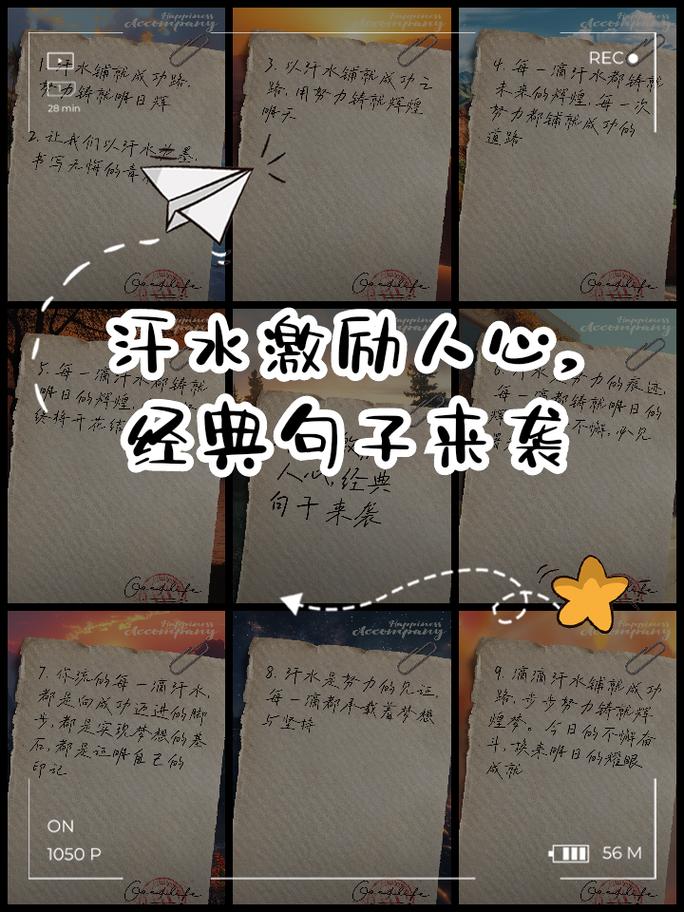 Happiness
Accompany
1. 汗水铺就成功路,
努力铸就明日辉
28 min
2. 让我们以汗水为墨,
书写无悔的青
3. 以汗水铺就成功之
路,用努力铸就辉煌
明天
REC
4. 每一滴汗水都铸就
未来的辉煌,每一次
努力都铺就成功的
道路
Goodlife
汗水激励人心,
经典句子来袭
5. 每一滴汗水都铸就
明日的辉煌,
终将开花结
人心,经典
句子来袭
努力的痕迹,
每一滴都铸就明日的
不懈,必见
Goodlife
Happiness
Accompany
7. 你流的每一滴汗水,
都是向成功迈进的脚
步,都是实现梦想的基
石,都是证明自己的
印记
8. 汗水是努力的见证,
每一滴都承载着梦想
与坚持
9. 滴滴汗水铺就成功
路,步步努力铸就辉
煌梦。今日的不懈奋
斗,换来明日的耀眼
成就
ON
1050 P
56 M
Goodlife